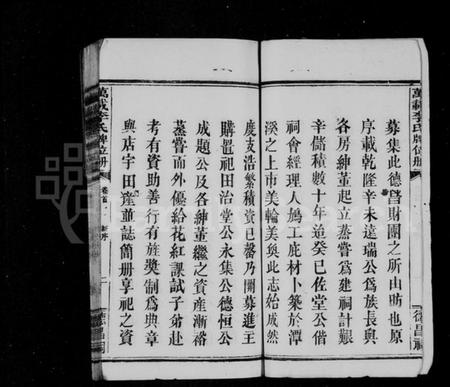 萬載李氏牌位册
募集此德昌財團之所由昉也原
序載乾隆辛未遠瑞公為族長與
各房紳董起立蒸嘗為建祠計艱
辛儲積數十年迨癸巳佐堂公偕
祠會經理人鳩工庀材卜築於潭
溪之上市美輪美奐此志始成然
度支浩繁積資已罄乃開募進主
購置祀田治堂公永集公德恒公
成題公及各紳董繼之資產漸裕
蒸嘗而外優給花紅課試子弟赴
考有資助善行有旌獎制為典章
興店宇田產並誌簡册享祀之資
德昌祠
萬載李氏牌位册
卷首
德昌祠